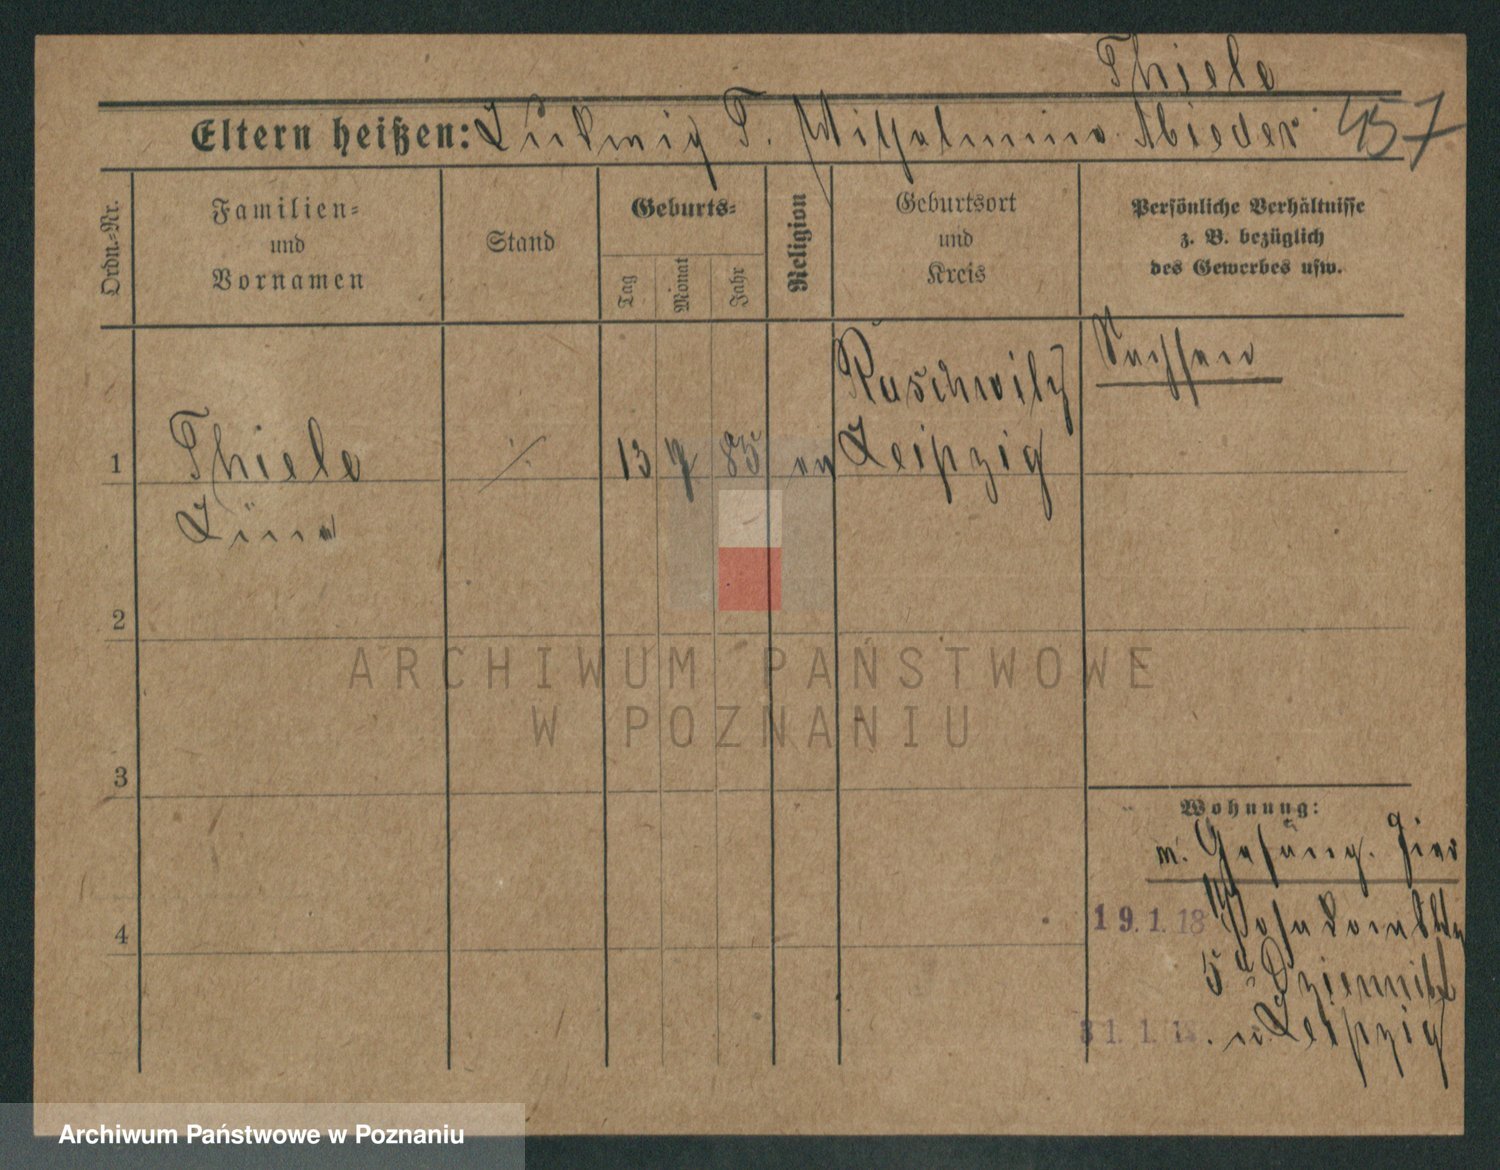 Thiele
Eltern heißen: Ludwig T. Wilhelmine Rieder 457
Ordn.-Nr.
Familien-
und
Vornamen
Stand
Geburts-
Tag
Monat
Jahr
Religion
Geburtsort
und
Kreis
Persönliche Verhältnisse
z. B. bezüglich
des Gewerbes usw.
Sachsen
Raschwitz
1 Thiele 13 7 85 ev Leipzig
2
3
4
Wohnung:
v. Gefäng. hier
19.1.18
5
31.1.18. n. Leipzig
ARCHIWUM PAŃSTWOWE
W POZNANIU
Archiwum Państwowe w Poznaniu